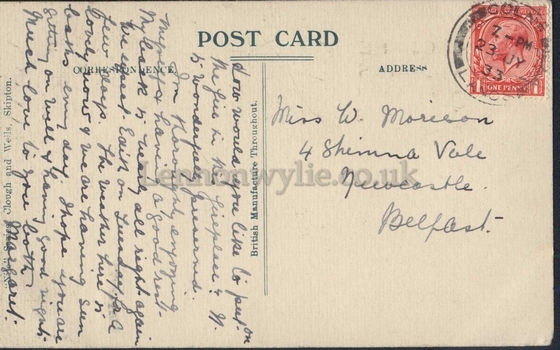 POST CARD
CORRESPONDENCE
ADDRESS
How would you like to put on
the fire in this fireplace? It
is wonderfully preserved.
I'm thoroughly enjoying
myself & having a good rest.
My back is nearly all right again
We expect Edith on Tuesday for a
few days. The weather here is
lovely now & we are having sun
baths every day. I hope you are
getting on well & having good nights
Much love to you both
Margaret.
Miss W. Morieson
4 Shimna Vale
Newcastle.
Belfast.
British Manufacture Throughout.
Clough and Wells, Skipton.
7-PM
23 JY
33
ONE PENNY
1
1
Lennonwylie.co.uk